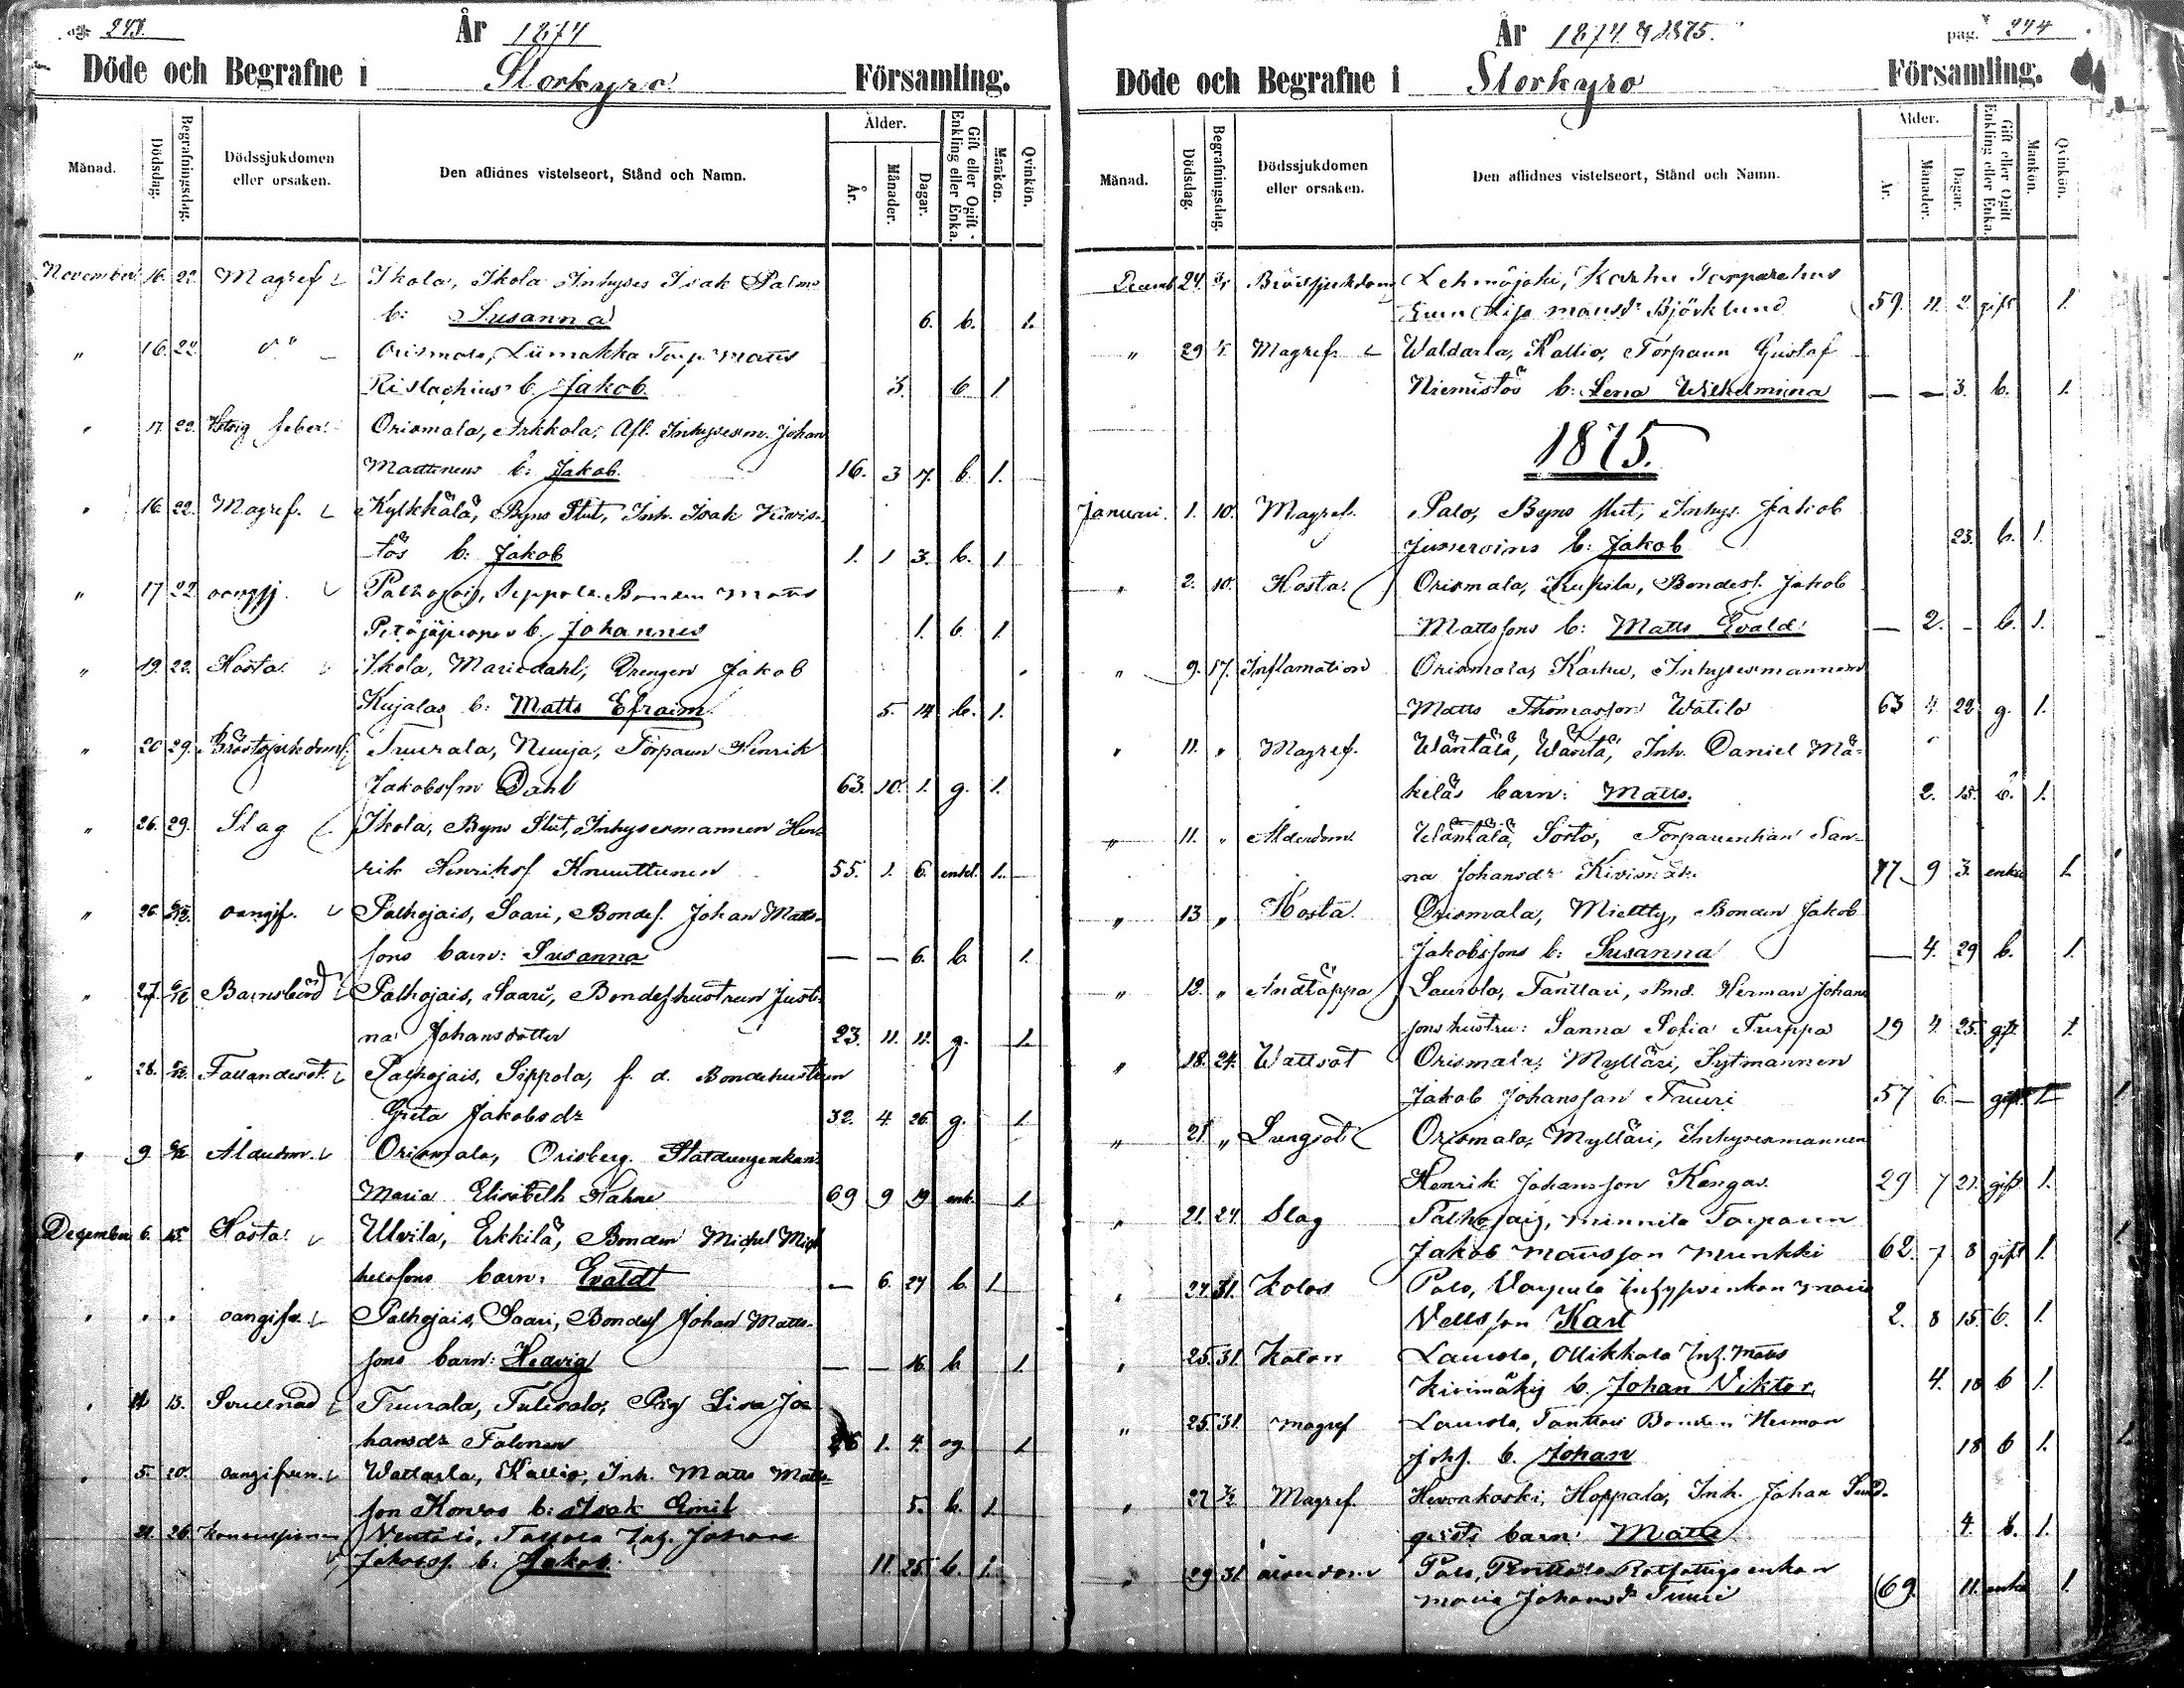 pag. 243.
År 1874
Döde och Begrafne i Storkyro Församling.
Månad. Dödsdag. Begrafningsdag. Dödssjukdomen eller orsaken. Den aflidnes vistelseort, Stånd och Namn. Ålder. År. Månader. Dagar. Gift eller Ogift. Enkling eller Enka. Mankön. Qvinkön.
November 16. 22. Magref Ikola, Ikola Inhyses Isak Palmo
b: Susanna 6. b. 1.
" 16. 22. d:o Orismala, Liimakka Torp. Matts
b. Jakob. 3. b 1
" 17. 22. Hetsig feber. Orismala, Arkkola, Afl. Inhysesm. Johan
Mattinens b: Jakob. 16. 3 7. b. 1.
" 16. 22. Magref. Kylkkälä, Byns Slut, Inh. Isak Kivis-
tös b: Jakob 1. 1 3. b. 1
" 17 22 oangifv. Palhojais, Seppola Bonden Matts
b. Johannes 1. b. 1
" 19. 22. Hosta. Ikola, Mariedahl, Drengen Jakob
Kujalas b: Matts Efraim. 5. 14 b. 1.
" 20 29. Bröstsjukdom Tuurala, Nuuja, Torparn Henrik
Jakobsson Dahl 63. 10. 1. g. 1.
" 26. 29. Slag Ikola, Byns Slut, Inhysesmannen Hen-
rik Henriksf Knuuttunen 55. 1. 6. enkl. 1.
" 26. 6/12. oangif. Palhojais, Saari, Bondes. Johan Matts-
sons barn: Susanna — — 6. b. 1.
" 27. 6/12 Barnsbörd Palhojais, Saari, Bondeshustrun Justi-
na Johansdotter 23. 11. 11. g. 1.
" 28. 6/12. Fallandesot. Palhojais, Sippola, f. d. Bondehustrun
Greta Jakobsdr 32. 4. 26. g. 1.
" 9. 6/12 Ålderdom. Orismala, Orisberg. Statdrengenkan
Maria Elisabeth Hahne 69 9 19 enk. 1.
December 6. 15. Hosta. Ulvila, Erkkilä, Bonden Michel Mic-
helssons barn: Evaldt — 6. 27 b. 1
" " " oangifv. Palhojais, Saari, Bondes Johan Matts-
sons barn: Hedvig — — 16. b. 1
" 11 13. Svullnad Tuurala, Tulisalo, Pig Lisa Jo-
hansdr Talonen 26 1. 4. og 1
" 5. 20. oangifven. Wallarla, Kallio, Inh. Matts Matts-
son b: Isak Emil 5. b. 1
21. 26. Konvulsioner Inh. Johan
Jakobsf. b: Jakob. 11. 25. b. 1.
pag. 244
År 1874 & 1875.
Döde och Begrafne i Storkyro Församling.
Månad. Dödsdag. Begrafningsdag. Dödssjukdomen eller orsaken. Den aflidnes vistelseort, Stånd och Namn. Ålder. År. Månader. Dagar. Gift eller Ogift Enkling eller Enka. Mankön. Qvinkön.
Decemb 24. 3/1 Bröstsjukdom Lehmäjoki, Karhu Torparehus
Lisa Mattsdr Björklund 59. 11. 2. gift 1.
" 29 Magref. Waldarla, Kallio, Torparn Gustaf
Niemistös b: Lena Wilhelmina — — 3. b. 1.
1875.
Januari. 1. 10. Magref. Palo, Byns slut, Inhys. Jakob
b: Jakob 23. b. 1.
" 2. 10. Hosta. Orismala, Kupila, Bondes. Jakob
Mattssons b: Matts Evald — 2. - b. 1.
" 9. 17. Inflamation Orismala, Karhu, Inhysesmannen
Matts Thomasson Watilo 63 4. 22. g. 1.
" 11. " Magref. Wäntälä, Wäntä, Inh. Daniel Mä-
keläs barn: Matts. 2. 15. b. 1.
" 11. " Ålderdom. Wäntälä, Sorto, Torparenkan San-
na Johansdr Kivimäki 77 9 3. enka 1.
" 13 " Hosta Orismala, Mieltty, Bonden Jakob
Jakobssons b: Susanna — 4. 29 b. 1.
" 12. " Andtäppa Laurola, Tanttari, Bond. Herman Johans
sons hustru: Sanna Sofia Turppa 29 4. 25. gift 1
" 18. 24. Wattsot Orismala, Mylläri, Sytmannen
Jakob Johansson Tuuri 57 6. — gift. 1
" 21. " Lungsot Orismala, Mylläri, Inhysesmannen
Henrik Johansson Kangas. 29 7 21. gift 1.
" 21. 24 Slag Palhojais, Minnila Torparen
Jakob Mattsson Munkki 62. 7 8 gift 1.
" 24. 31. Kolos Palo, Warpula Inhysesenkan Maria
Karl 2. 8 15. b. 1.
" 25. 31. Kolos Laurola, Ollikkala Inh. Matts
Kivimäkis b. Johan Viktor. 4. 18 b 1.
" 25. 31. Magref Laurola, Tanttari Bonden Herman
Johs. b. Johan 18 b 1.
" 27 7/2 Magref. Hevonkoski, Hoppala, Inh. Johan Lind-
qvists barn Matts 4. b. 1.
" 29 31 Ålderdom Palo, Penttala Rotfattigs enkan
Maria Johansdr Tuuri 69. 11. enka 1.